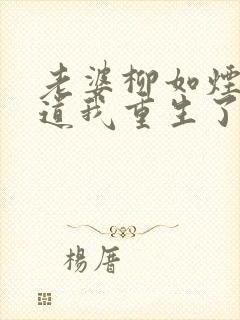 老婆柳如煙
道我重生了
楊厝